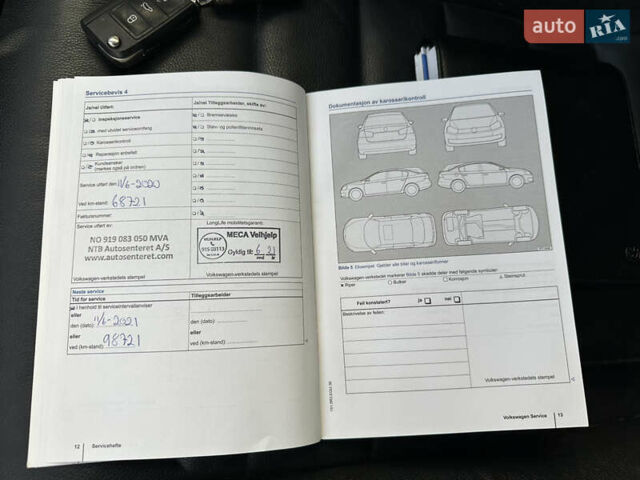 auto RIA .com
Servicebevis 4
Ja/nei Utført:
Ja/nei Tilleggsarbeider, skifte av:
Inspeksjonsservice
Bremsevæske
med utvidet serviceomfang
Støv- og pollenfilterinnsats
Karosserikontroll
Reparasjon anbefalt
Kundeønsker
(merkes også på ordren)
Service utført den 11/6-2020
Ved km-stand: 68721
Fakturanummer:
Service utført av:
LongLife mobilitetsgaranti:
NO 919 083 050 MVA
NTB Autosenteret A/S
www.autosenteret.com
MECA Veihjelp
VEIHJELP
Gyldig til: 6 21
Volkswagen-verkstedets stempel
Volkswagen-verkstedets stempel
Neste service
Tid for service
Tilleggsarbeider
i henhold til serviceintervallanviser
eller
den (dato): 11/6-2021
den (dato):
eller
eller
ved (km-stand): 98721
ved (km-stand):
12 Servicehefte
Dokumentasjon av karosserikontroll
Bilde 5 Eksempel: Gjelder alle biler og karosseriformer
Volkswagen-verkstedet markerer Bilde 5 skadde deler med følgende symboler:
Riper
Bulker
Korrosjon
Steinsprut
Feil konstatert?
ja
nei
Beskrivelse av feilen:
Volkswagen-verkstedets stempel
Volkswagen Service 13